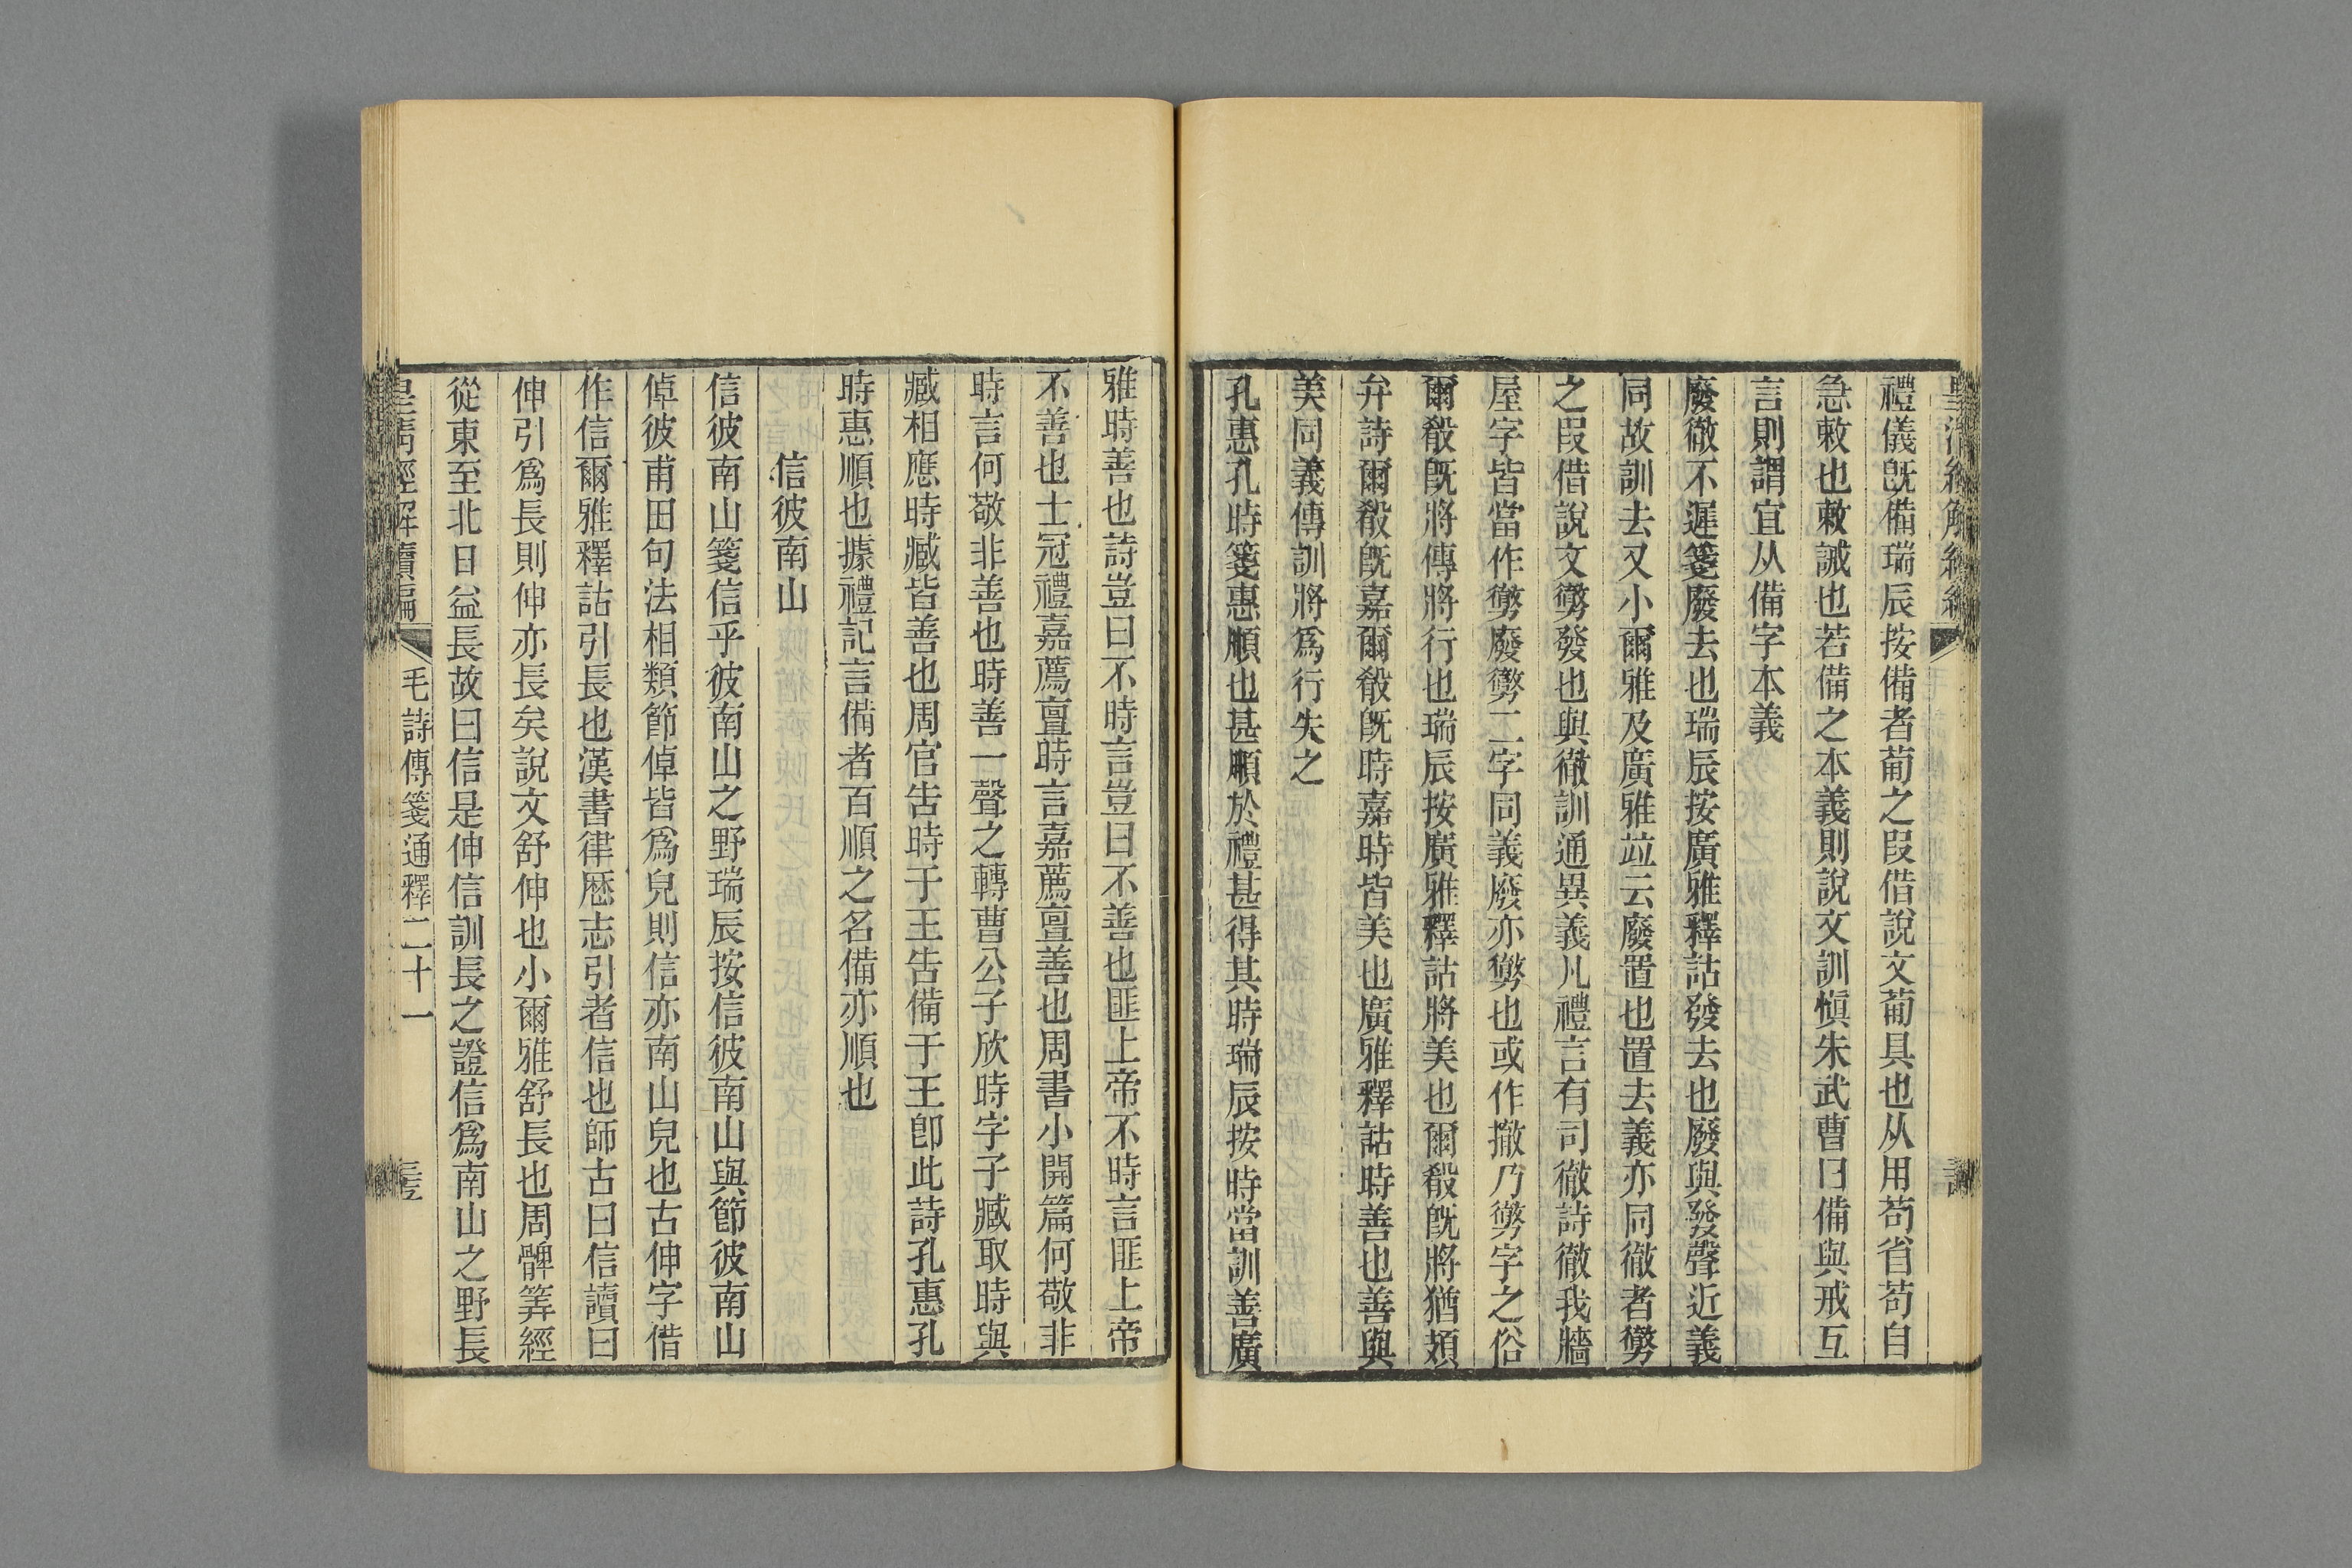 禮儀旣備瑞辰按備者葡之叚借說文葡具也从用苟省苟自
急敕也敕誡也若備之本義則說文訓愼朱武曹曰備與戒互
言則謂宜从備字本義
廢徹不遲箋廢去也瑞辰按廣雅釋詁發去也廢與發聲近義
同故訓去又小爾雅及廣雅竝云廢置也置去義亦同徹者勶
之叚借說文勶發也與徹訓通異義凡禮言有司徹詩徹我牆
屋字皆當作勶廢勶二字同義廢亦勶也或作撤乃勶字之俗
爾殽旣將傳將行也瑞辰按廣雅釋詁將美也爾殽旣將猶頍
弁詩爾殽旣嘉爾殽旣時嘉時皆美也廣雅釋詁時善也善與
美同義傳訓將爲行失之
孔惠孔時箋惠順也甚順於禮甚得其時瑞辰按時當訓善廣
雅時善也詩豈曰不時言豈曰不善也匪上帝不時言匪上帝
不善也士冠禮嘉薦亶時言嘉薦亶善也周書小開篇何敬非
時言何敬非善也時善一聲之轉曹公子欣時字子臧取時與
臧相應時臧皆善也周官告時于王告備于王卽此詩孔惠孔
時惠順也據禮記言備者百順之名備亦順也
信彼南山
信彼南山箋信乎彼南山之野瑞辰按信彼南山與節彼南山
倬彼甫田句法相類節倬皆爲皃則信亦南山皃也古伸字借
作信爾雅釋詁引長也漢書律厯志引者信也師古曰信讀曰
伸引爲長則伸亦長矣說文舒伸也小爾雅舒長也周髀筭經
從東至北日益長故曰信是伸信訓長之證信爲南山之野長
皇淸經解續編
毛詩傳箋通釋二十一